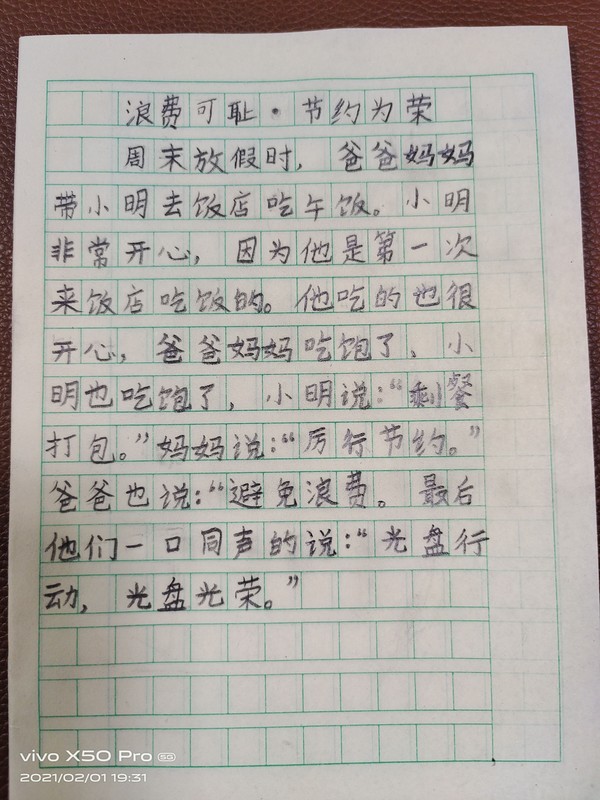 浪费可耻·节约为荣
周末放假时，爸爸妈妈
带小明去饭店吃午饭。小明
非常开心，因为他是第一次
来饭店吃饭的。他吃的也很
开心，爸爸妈妈吃饱了、小
明也吃饱了，小明说：“剩餐
打包。”妈妈说：“厉行节约。”
爸爸也说：“避免浪费。最后
他们一口同声的说：“光盘行
动，光盘光荣。”
vivo X50 Pro 5G
2021/02/01 19:31